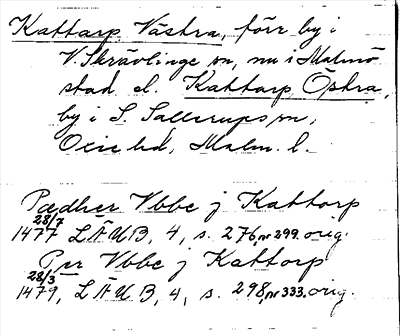 Kattarp Västra, förr by i
V. Skrävlinge sn, nu i Malmö
stad el. Kattarp Östra,
by i S. Sallerups sn,
Oxie hd, Malm. l.
Pædher Vbbe j Kattorp
28/7
1477 LÄUB, 4, s. 276, nr 299. orig.
Per Vbbe j Kattorp
28/3
1479, LÄUB, 4, s. 298, nr 333. orig.